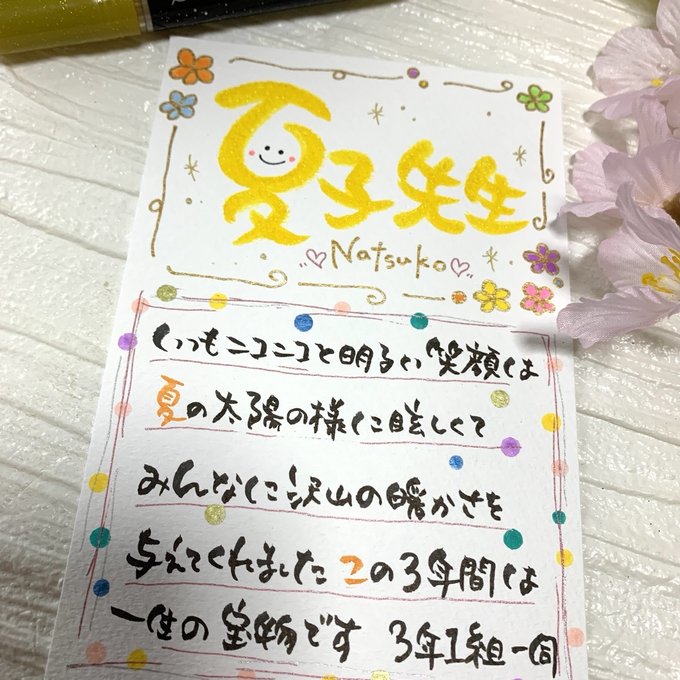 夏子先生
Natsuko
いつもニコニコと明るい笑顔は
夏の太陽の様に眩しくて
みんなに沢山の暖かさを
与えてくれました この3年間は
一生の宝物です 3年1組一同